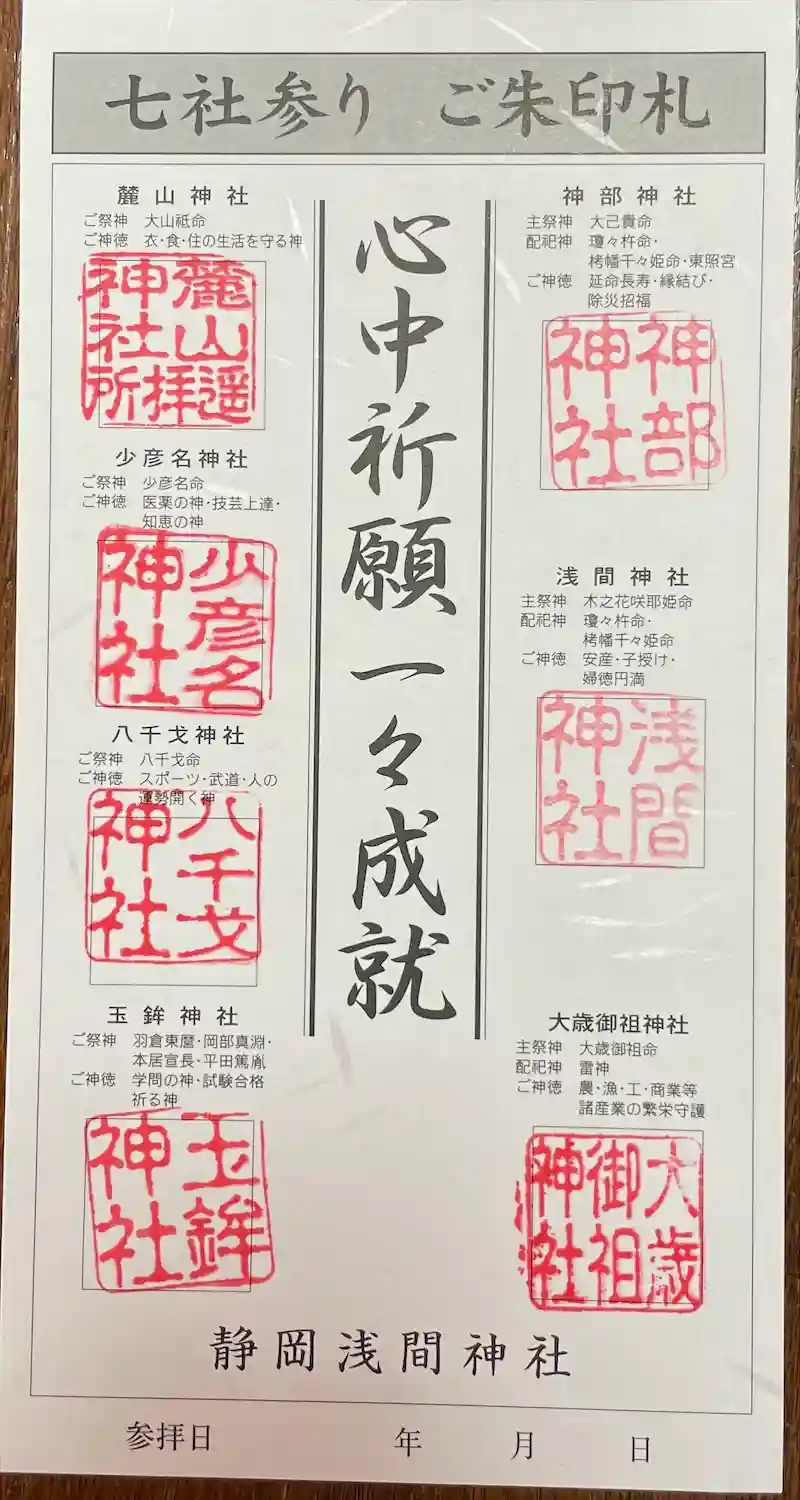 七社参り ご朱印札
神部神社
主祭神 大己貴命
配祀神 瓊々杵命・
栲幡千々姫命・東照宮
ご神徳 延命長寿・縁結び・
除災招福
神部
神社
浅間神社
主祭神 木之花咲耶姫命
配祀神 瓊々杵命・
栲幡千々姫命
ご神徳 安産・子授け・
婦徳円満
浅間
神社
大歳御祖神社
主祭神 大歳御祖命
配祀神 雷神
ご神徳 農・漁・工・商業等
諸産業の繁栄守護
大歳
御祖
神社
心中祈願 一々成就
麓山神社
ご祭神 大山祇命
ご神徳 衣・食・住の生活を守る神
麓山遥
拝
神社所
少彦名神社
ご祭神 少彦名命
ご神徳 医薬の神・技芸上達・
知恵の神
少彦名
神社
八千戈神社
ご祭神 八千戈命
ご神徳 スポーツ・武道・人の
運勢開く神
八千戈
神社
玉鉾神社
ご祭神 羽倉東麿・岡部真淵・
本居宣長・平田篤胤
ご神徳 学問の神・試験合格
祈る神
玉鉾
神社
静岡浅間神社
参拝日 年 月 日